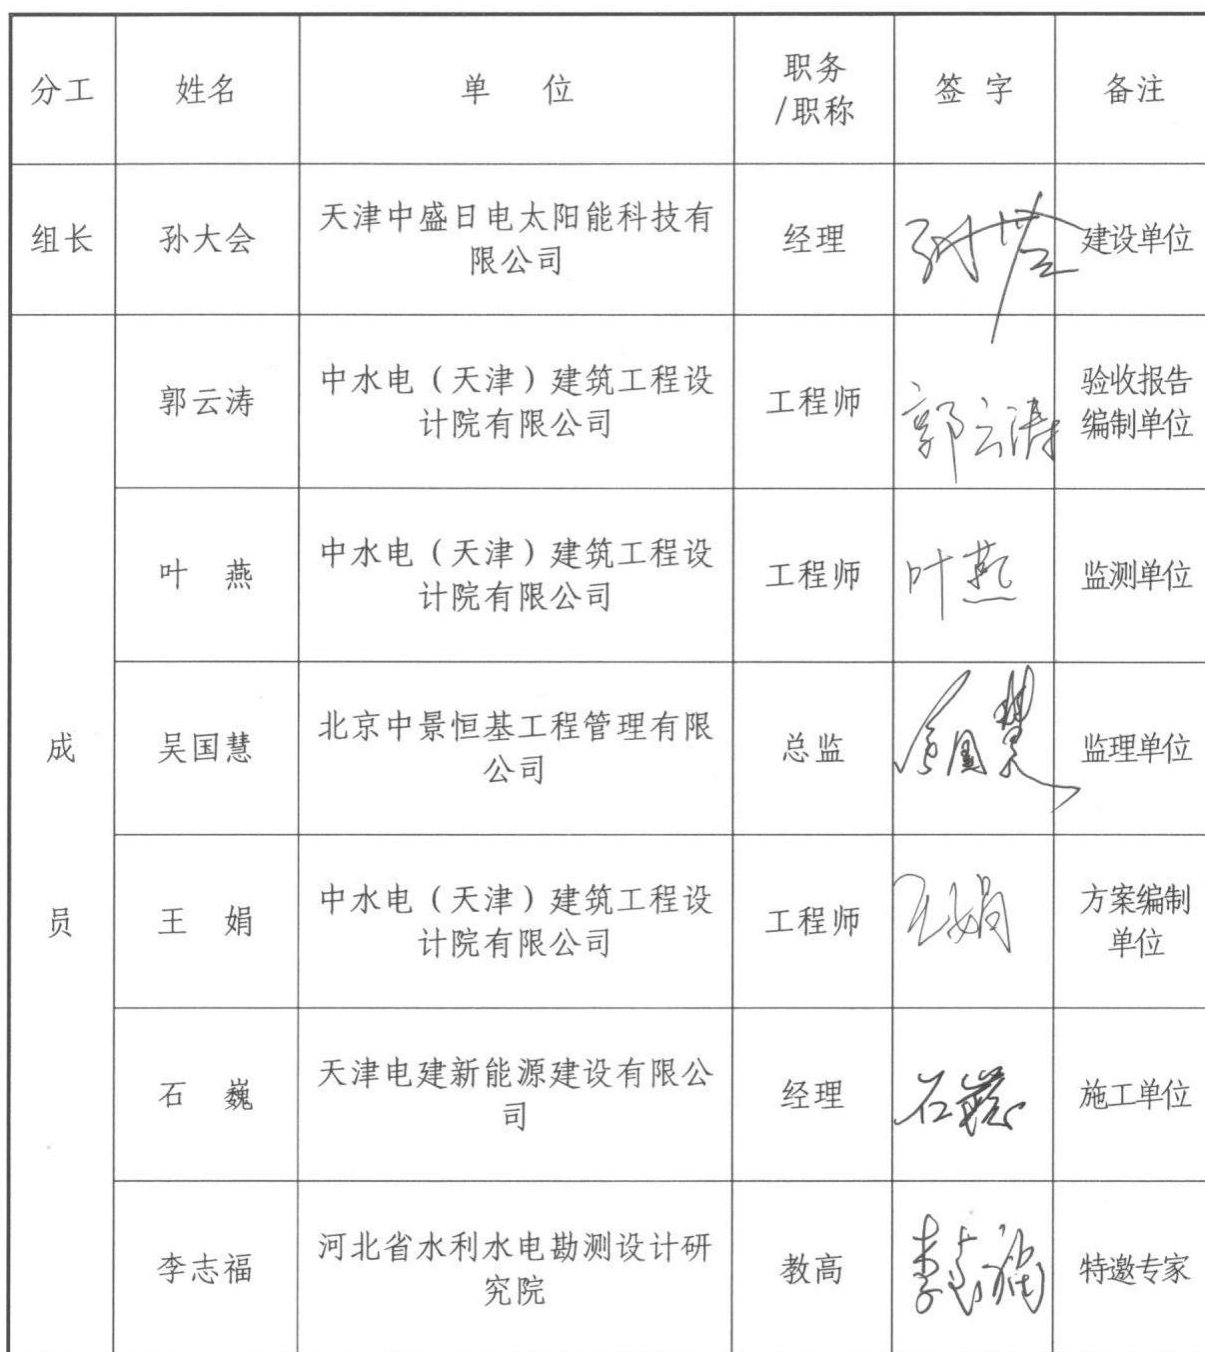 分工 姓名 单 位 职务/职称 签 字 备注
组长 孙大会 天津中盛日电太阳能科技有限公司 经理 建设单位
成员
郭云涛 中水电（天津）建筑工程设计院有限公司 工程师 郭云涛 验收报告编制单位
叶 燕 中水电（天津）建筑工程设计院有限公司 工程师 叶燕 监测单位
吴国慧 北京中景恒基工程管理有限公司 总监 吴国慧 监理单位
王 娟 中水电（天津）建筑工程设计院有限公司 工程师 王娟 方案编制单位
石 巍 天津电建新能源建设有限公司 经理 石巍 施工单位
李志福 河北省水利水电勘测设计研究院 教高 李志福 特邀专家